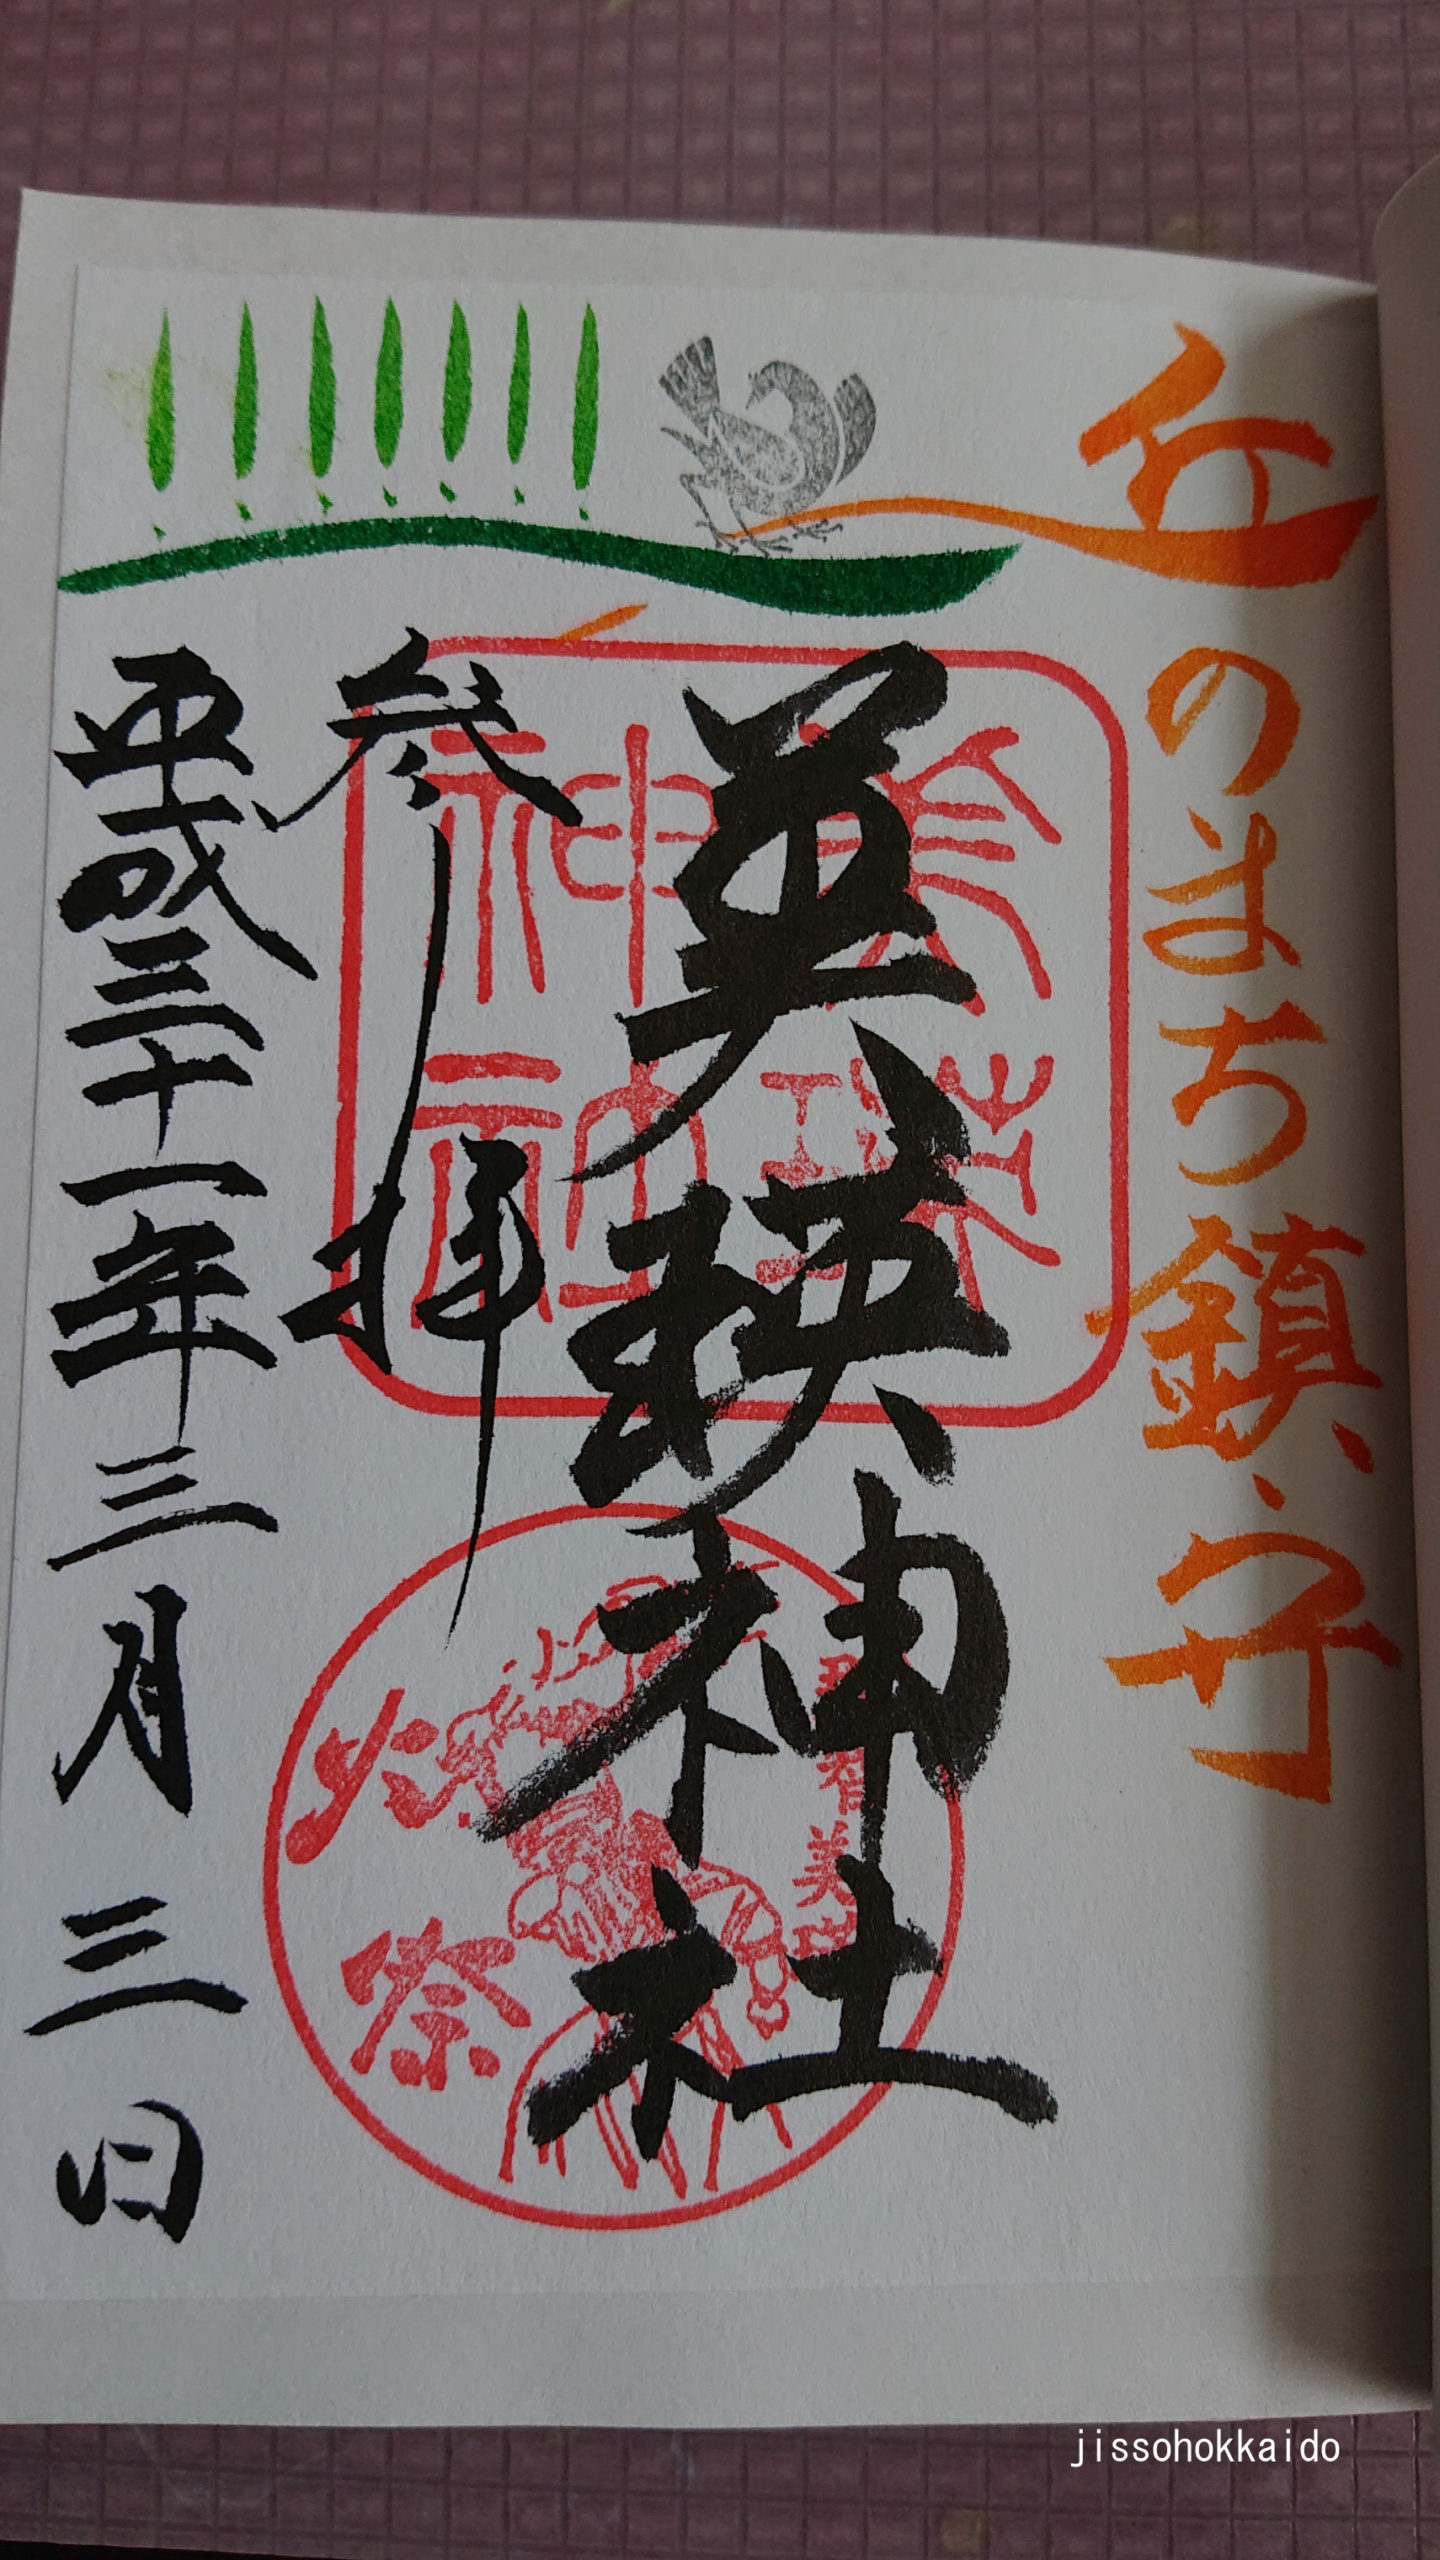 丘のまち鎮守
美瑛神社
参拝
平成三十一年三月三日
美瑛
神社
火祭
jissohokkaido